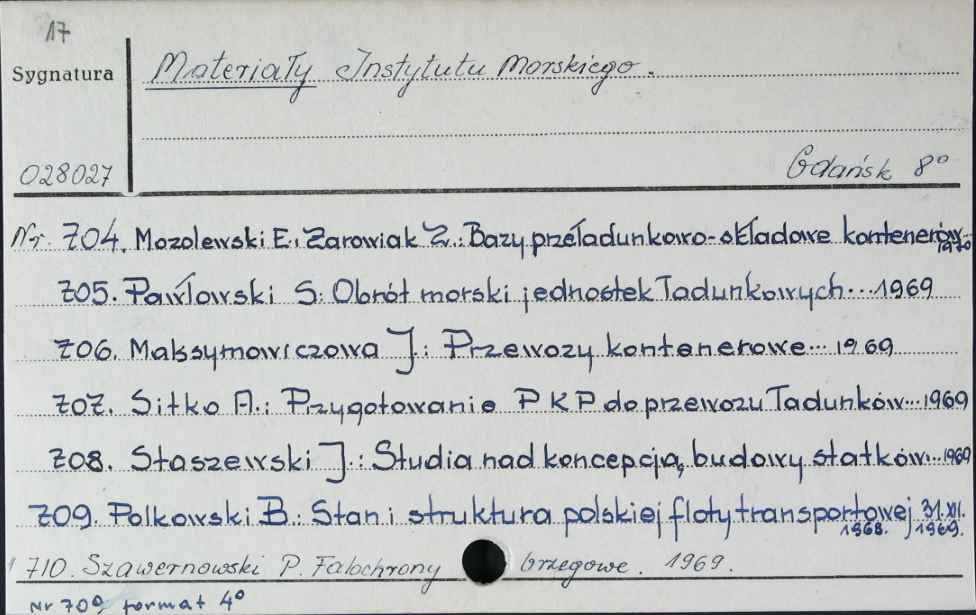 17
Sygnatura
Materiały Instytutu Morskiego.
028027
Gdańsk 8°
Nr. 704. Mozolewski E., Żarowiak Z.: Bazy przeładunkowo-składowe kontenerów... 1970
705. Pawłowski S: Obrót morski jednostek ładunkowych... 1969
706. Maksymowiczowa J.: Przewozy kontenerowe... 1969
707. Sitko A.: Przygotowanie PKP do przewozu ładunków... 1969
708. Staszewski J.: Studia nad koncepcją budowy statków... 1969
709. Polkowski B.: Stan i struktura polskiej floty transportowej 31.XII.
1968. 1969.
710. Szawernowski P. Falochrony brzegowe. 1969.
Nr 709 format 4°